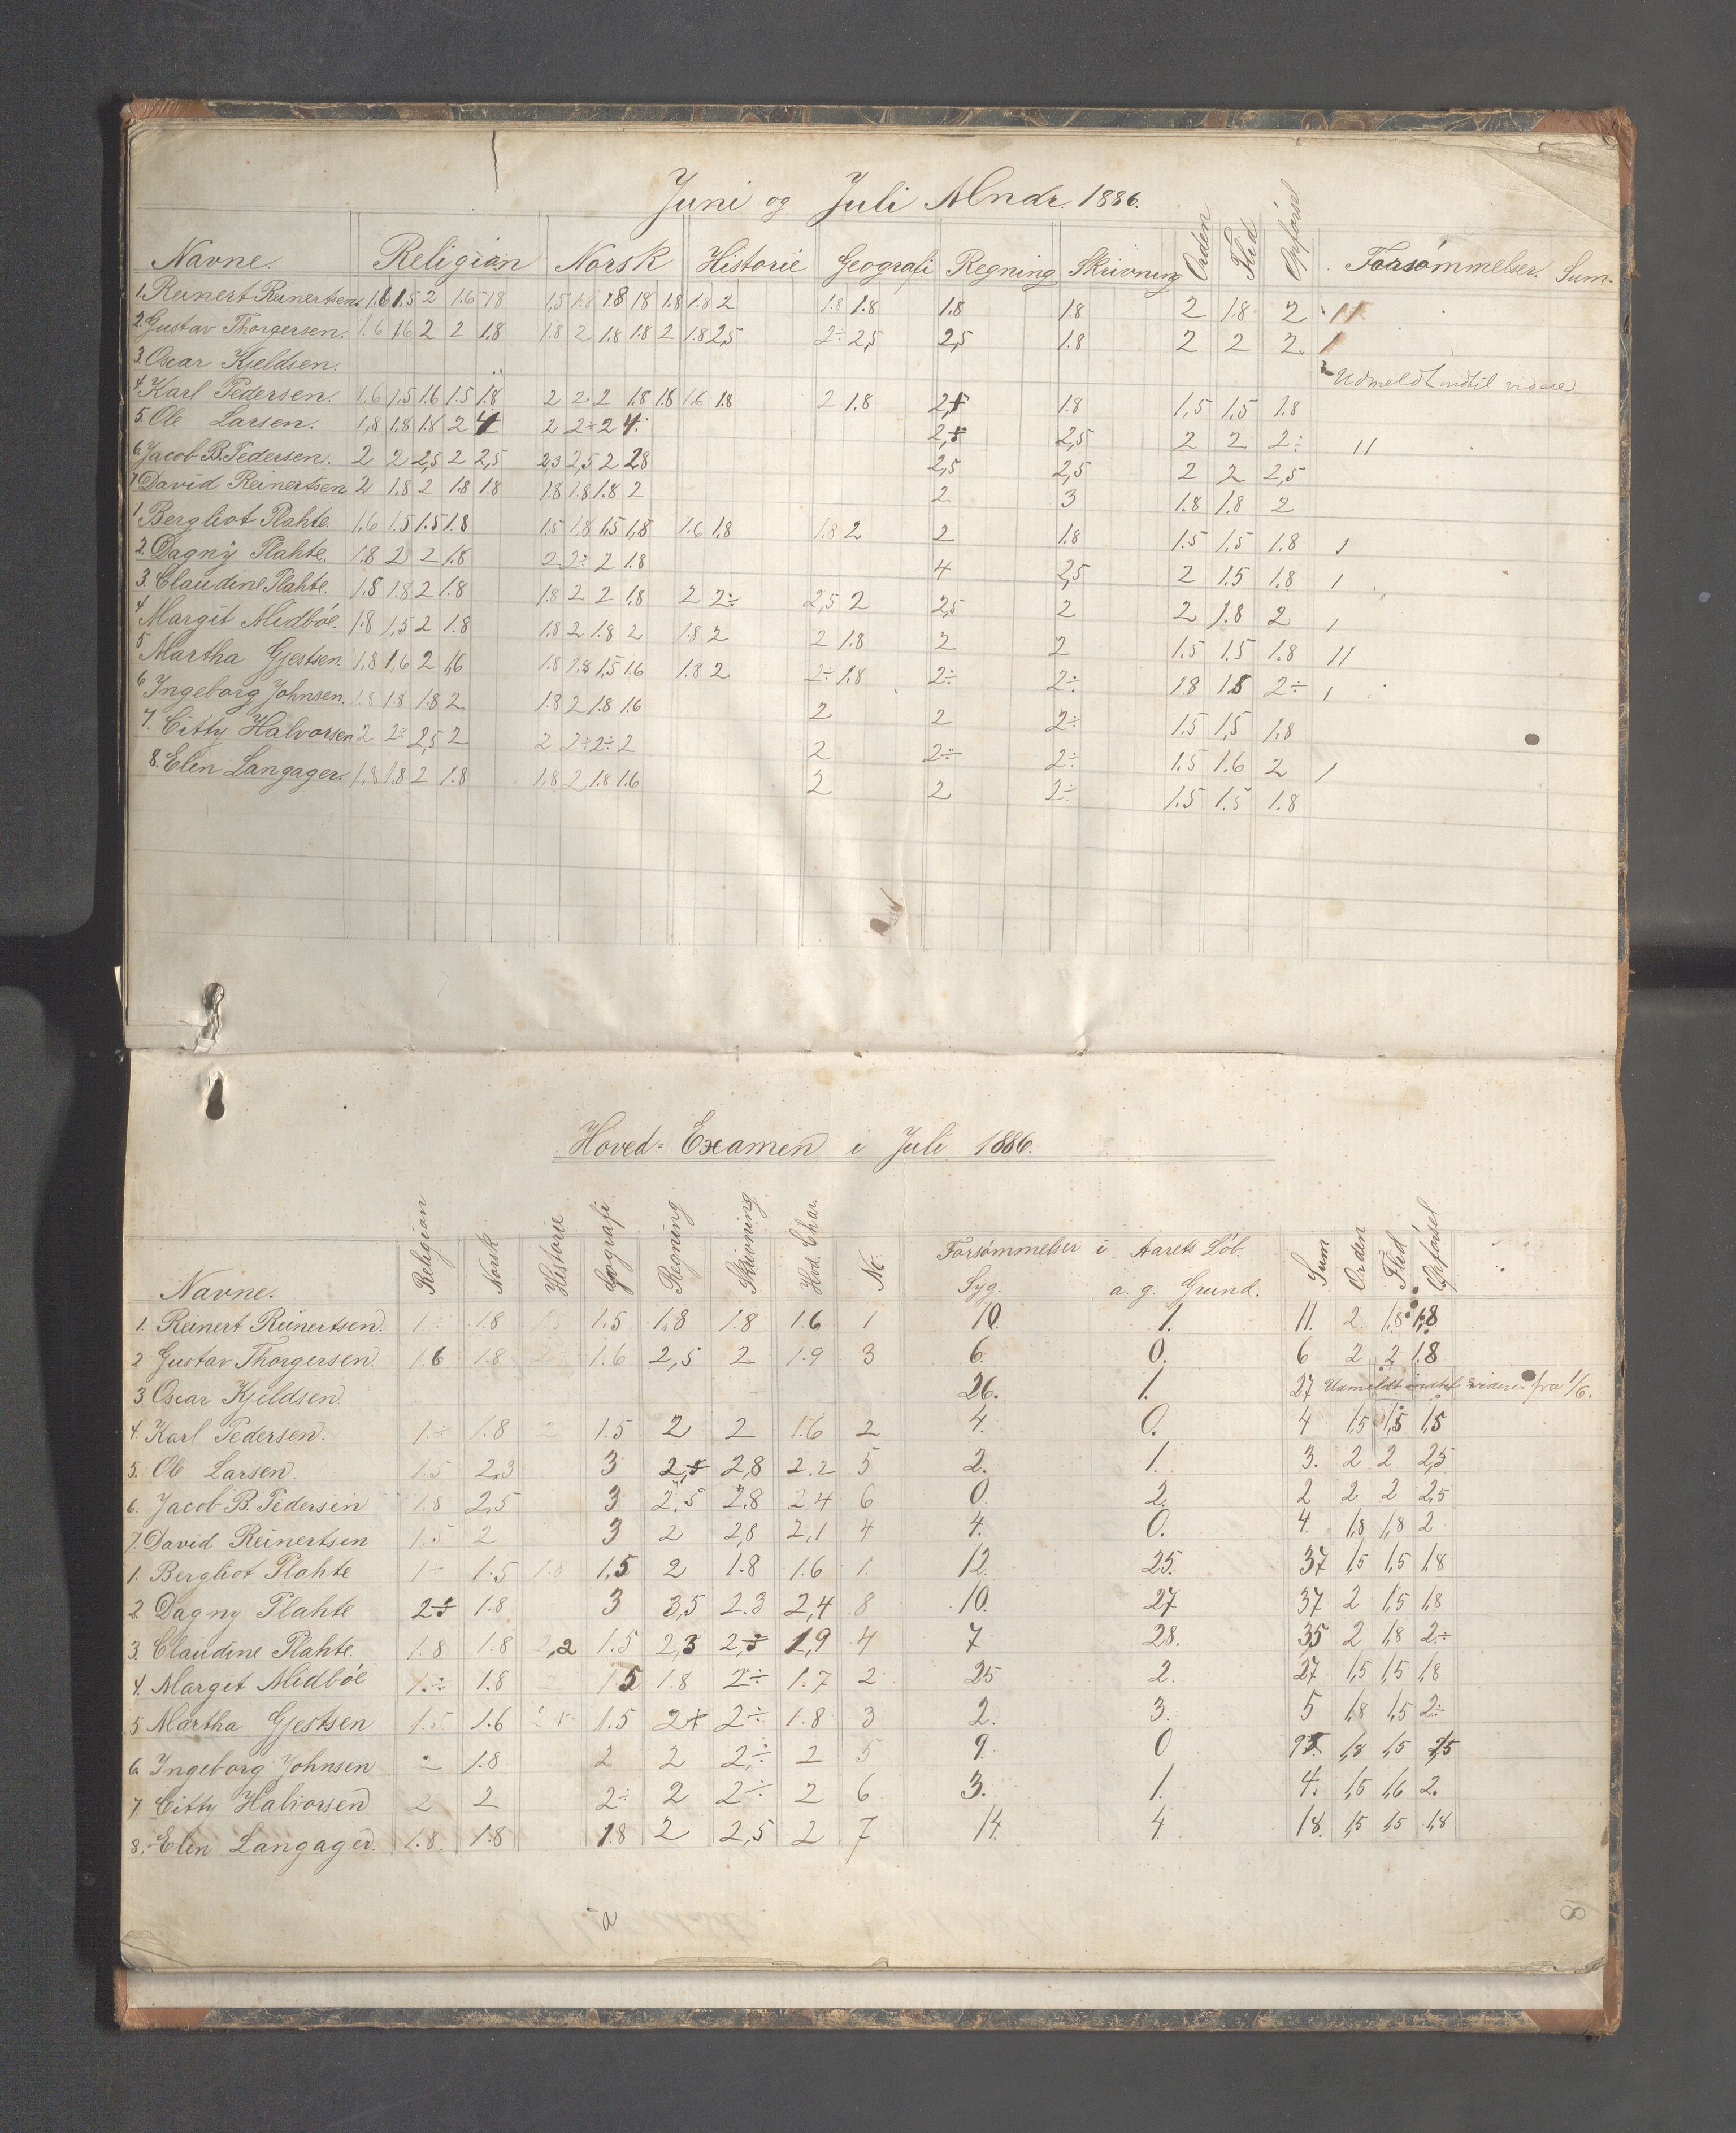 Juni og Juli Mndr. 1886.
Navne. Religion Norsk Historie Geografi Regning Skrivning Orden Flid Opførsel Forsømmelser. Sum.
1. Reinert Reinertsen. 1.6 1.5 2 1.6 1.8 1,5 1.8 1.8 1.8 1.8 1.8 2 1.8 1.8 1.8 1.8 2 1.8 2 11
2. Gustav Thorgersen. 1.6 1.6 2 2 1.8 1.8 2 1.8 1.8 2 1.8 2,5 2÷ 2,5 2,5 1.8 2 2 2. 1
3. Oscar Kjeldsen. Udmeldt indtil videre
4. Karl Pedersen. 1.6 1,5 1.6 1.5 1.8 2 2 2 1.8 1.8 1.6 1.8 2 1.8 2,+ 1.8 1,5 1,5 1.8
5. Ole Larsen. 1,8 1.8 1.8 2 4 2 2÷ 2 4. 2,+ 2,5 2 2 2÷ 11
6. Jacob B. Pedersen. 2 2 2,5 2 2,5 2,3 2,5 2 2,8 2,5 2,5 2 2 2,5
7. David Reinertsen 2 1.8 2 1.8 1.8 1.8 1.8 1.8 2 2 3 1.8 1.8 2
1. Bergliot Plahte. 1,6 1.5 1.5 1.8 1.5 1.8 1,5 1,8 1.6 1,8 1.8 2 2 1.8 1.5 1,5 1.8 1
2. Dagny Plahte. 1.8 2 2 1.8 2 2÷ 2 1.8 4 2,5 2 1.5 1.8 1
3. Claudine Plahte. 1.8 1.8 2 1.8 1.8 2 2 1,8 2 2÷ 2,5 2 2,5 2 2 1.8 2 1
4. Margit Midbøe. 1.8 1,5 2 1.8 1.8 2 1.8 2 1.8 2 2 1.8 2 2 1.5 1.5 1.8 11
5 Martha Gjestsen. 1,8 1,6 2 1,6 1.8 1.8 1,5 1.6 1.8 2 2÷ 1.8 2÷ 2÷ 1.8 1.5 2÷ 1
6. Ingeborg Johnsen. 1.8 1.8 1.8 2 1.8 2 1.8 1.6 2 2 2÷ 1.5 1,5 1.8
7. Citty Halvorsen 2 2÷ 2,5 2 2 2÷ 2÷ 2 2 2÷ 2÷ 1.5 1.6 2 1
8. Elen Langager. 1,8 1,8 2 1.8 1.8 2 1.8 1.6 2 2 2÷ 1.5 1.5 1.8
Hoved-Examen i Juli 1886.
Navne. Religion Norsk Historie Geografi Regning Skrivning Hvd. Char. No Forsømmelser i Aarets Løb. Sum Orden Flid Opførsel
Syg. a. g. Grund.
1. Reinert Reinertsen. 1÷ 1.8 1.5 1,8 1.8 1.6 1 10. 1. 11. 2. 1.8 1.8
2 Gustav Thorgersen. 1.6 1.8 2 1.6 2,5 2 1.9 3 6. 0. 6 2 2 1.8
3 Oscar Kjeldsen. 26. 1. 27 Udmeldt indtil videre fra 1/6.
4. Karl Pedersen. 1÷ 1.8 2 1.5 2 2 1.6 2 4. 0. 4 1,5 1,5 1,5
5. Ole Larsen. 1.5 2,3 3 2,+ 2,8 2.2 5 2. 1. 3. 2 2 2,5
6. Jacob B. Pedersen 1.8 2,5 3 2.5 2.8 2.4 6 0. 2. 2 2 2 2,5
7. David Reinertsen 1.5 2 3 2 2,8 2,1 4 4. 0. 4. 1,8 1,8 2
1. Bergliot Plahte 1÷ 1.5 1.8 1,5 2 1.8 1.6 1. 12. 25. 37 1,5 1,5 1,8
2. Dagny Plahte 2÷ 1.8 3 3,5 2.3 2,4 8 10. 27 37 2 1,5 1,8
3. Claudine Plahte. 1.8 1.8 2,2 1.5 2,3 2,÷ 1,9 4 7 28. 35 2 1,8 2÷
4. Margit Midbøe 1.÷ 1.8 2 1.5 1.8 2÷ 1.7 2 25 2. 27 1,5 1,5 1,8
5 Martha Gjestsen 1.5 1.6 2+ 1.5 2+ 2÷ 1.8 3 2. 3. 5 1,8 1,5 2÷
6. Ingeborg Johnsen 1.8 2 2 2÷ 2 5 9. 0 1,8 1,5 1,5
7. Citty Halvorsen 2 2 2÷ 2 2÷ 2 6 3. 1. 4. 1,5 1,6 2.
8. Elen Langager. 1.8. 1.8 1.8 2 2,5 2 7 14. 4 18. 1,5 1,5 1,8
a
8